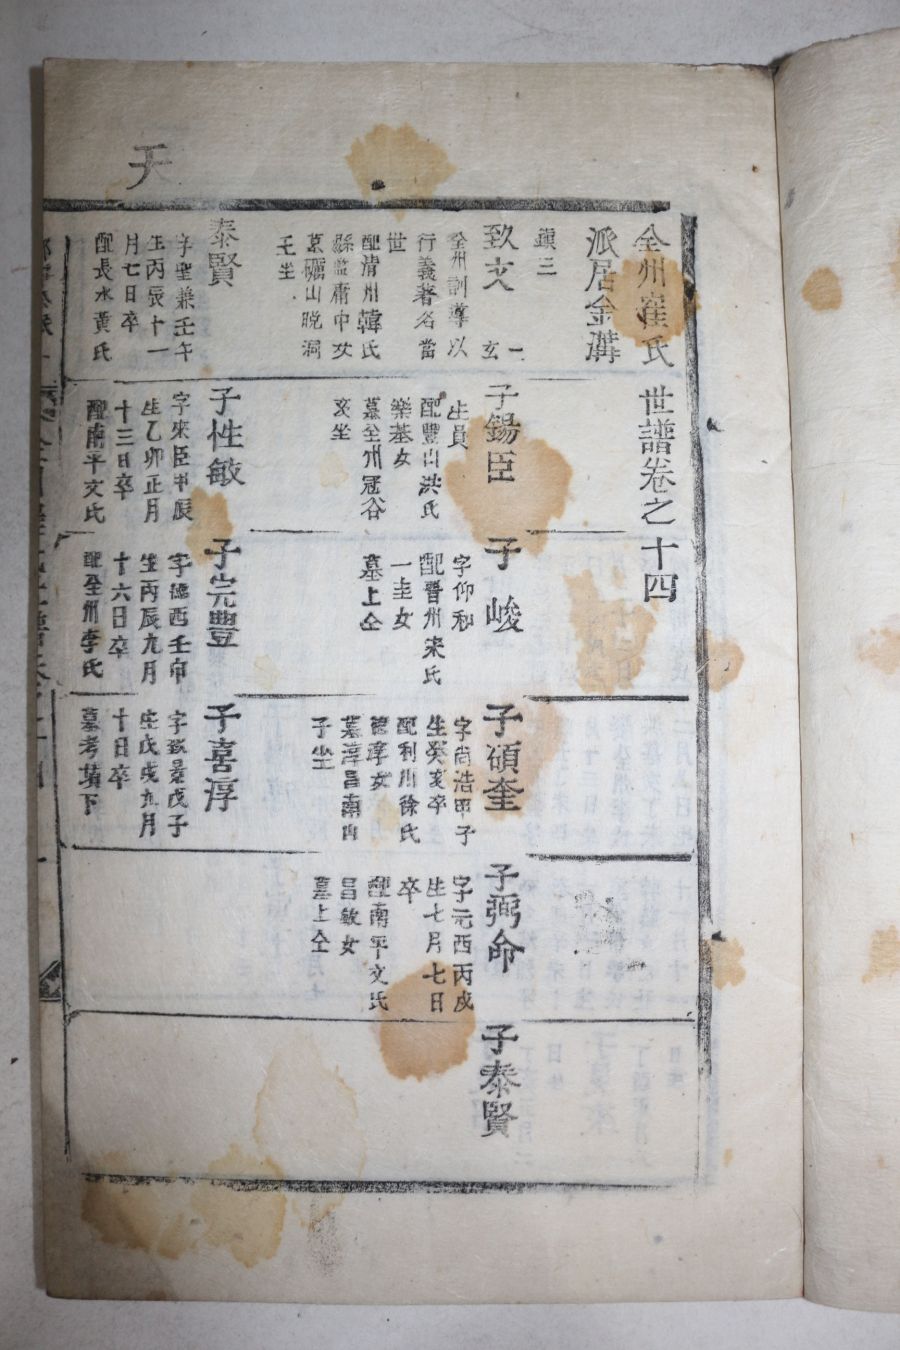 天
全州崔氏世譜卷之十四
派居金溝
鎭三
致文 玄一
全州訓導以
行義著名當
世
配淸州韓氏
縣監庸中女
墓礪山晩洞
壬坐
子錫臣
生員
配豐山洪氏
樂基女
墓全州冠谷
亥坐
子峻
字仰和
配晋州宋氏
一圭女
墓上仝
子碩奎
字尙浩甲子
生癸亥卒
配利川徐氏
德淳女
墓淳昌南內
子坐
子弼命
字元西丙戌
生七月七日
卒
配南平文氏
昌敏女
墓上仝
子泰賢
泰賢
字聖兼壬午
生丙辰十一
月七日卒
配長水黃氏
子性敏
字來臣甲辰
生乙卯正月
十三日卒
配南平文氏
子完豐
字德西壬申
生丙辰九月
十六日卒
配全州李氏
子喜淳
字致景戊子
生戊戌九月
十日卒
墓考墳下